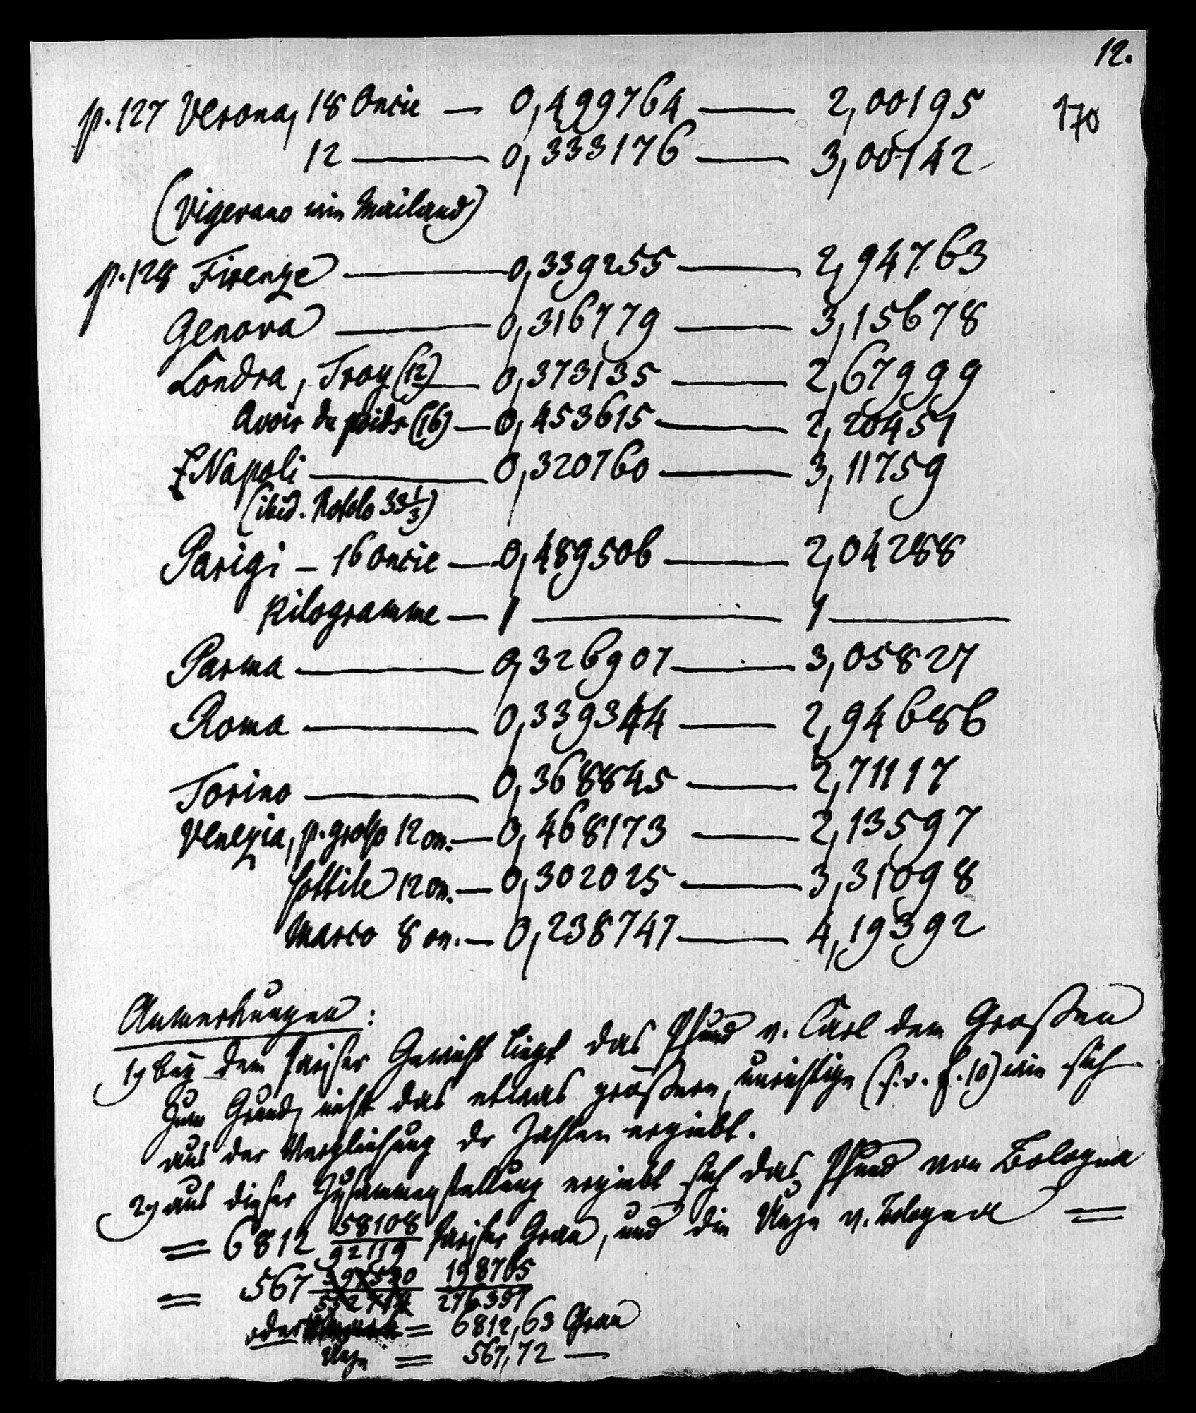 12.
p. 127 Verona, 18 Oncie — 0,499764 — 2,00195
170
12 — 0,333176 — 3,00142
(Vigevano wie Mailand)
p. 128 Firenze — 0,339255 — 2,94763
Genova — 0,316779 — 3,15678
Londra, Troy (12) — 0,373135 — 2,67999
Avoir du poids (16) — 0,453615 — 2,20451
Napoli — 0,320760 — 3,11759
(ibid. Rotolo 33 1/3)
Parigi — 16 Oncie — 0,489506 — 2,04288
Kilogramme — 1 — 1 —
Parma — 0,326901 — 3,05827
Roma — 0,339344 — 2,94686
Torino — 0,368845 — 2,71117
Venezia, p. grosso 12 on. — 0,468173 — 2,13597
sottile 12 on. — 0,302025 — 3,31098
Marco 8 on. — 0,238747 — 4,19392
Anmerkungen:
1) bey dem Pariser Gewicht liegt das Pfund v. Carl dem Großen
zum Grund, nicht das etwas größere, unrichtige (s. v. p. 10) wie sich
aus der Vergleichung der Zahlen ergiebt.
2) aus dieser Zusammenstellung ergiebt sich das Pfund von Bologna
= 6812 58108/92119 Pariser Gran, und die Unze v. Bologna =
= 567 198765/276357
oder = 6812,63 Gran
Unze = 567,72 —